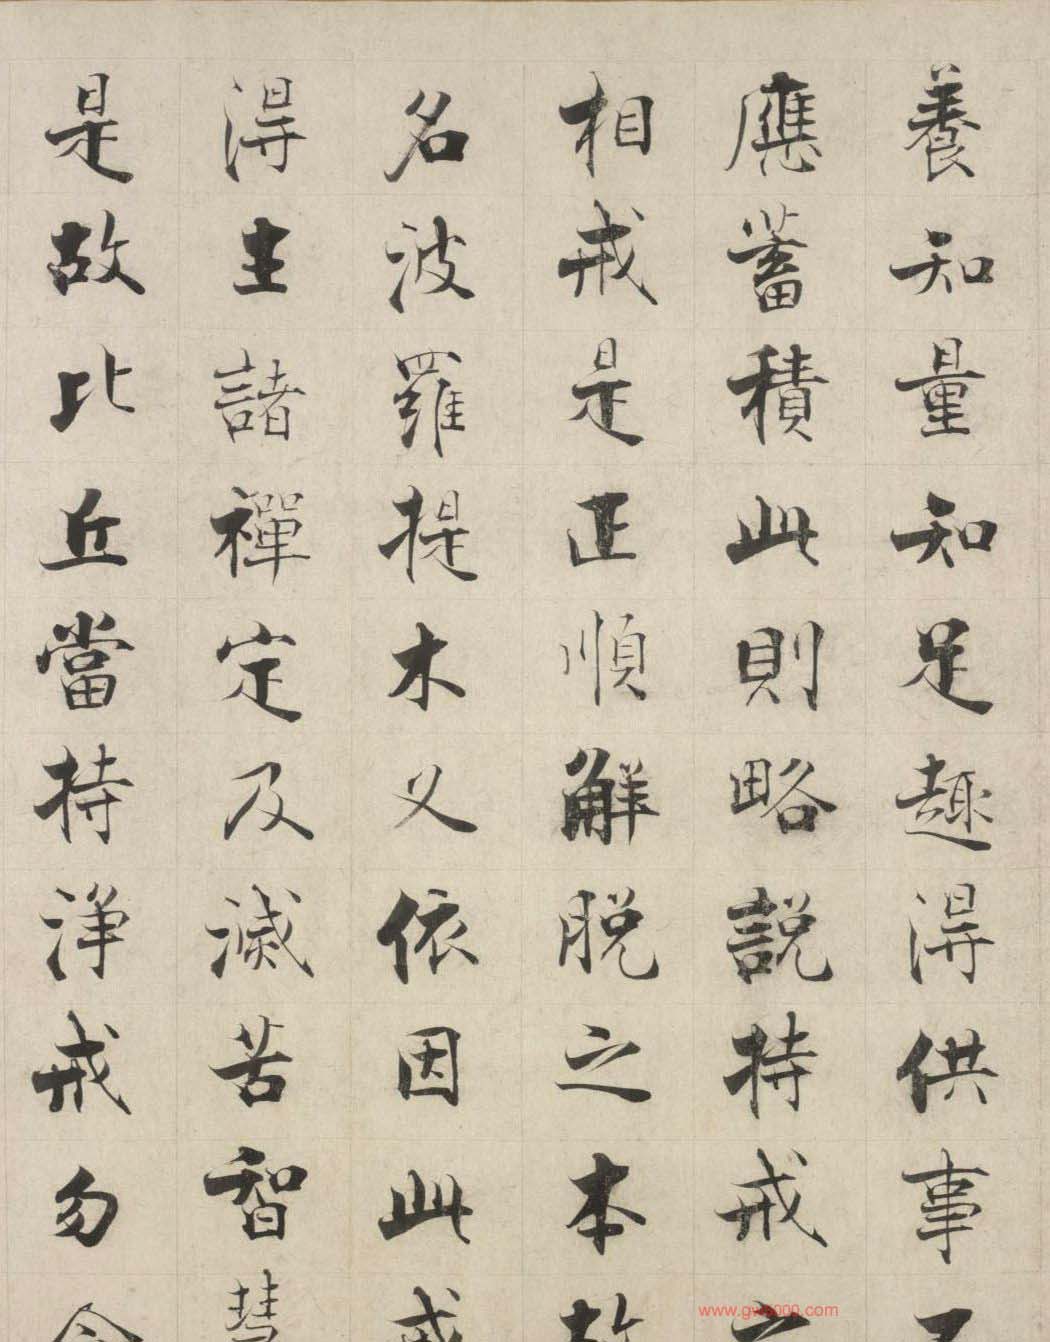 養知量知足趣得供事不
應蓄積此則略説持戒之
相戒是正順解脱之本故
名波羅提木叉依因此戒
得生諸禪定及滅苦智慧
是故比丘當持淨戒勿令